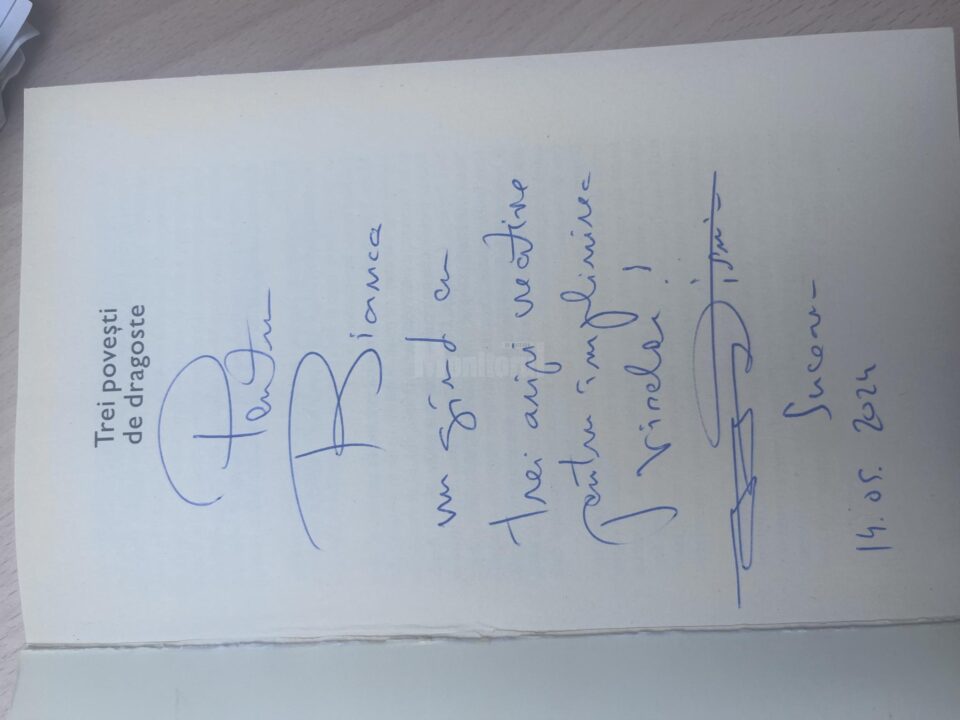 Trei povești
de dragoste
Pentru
Bianca
un gînd cu
trei aripi creative
pentru împlinirea
visului!
Suceava
14.05.2024
Monitorul